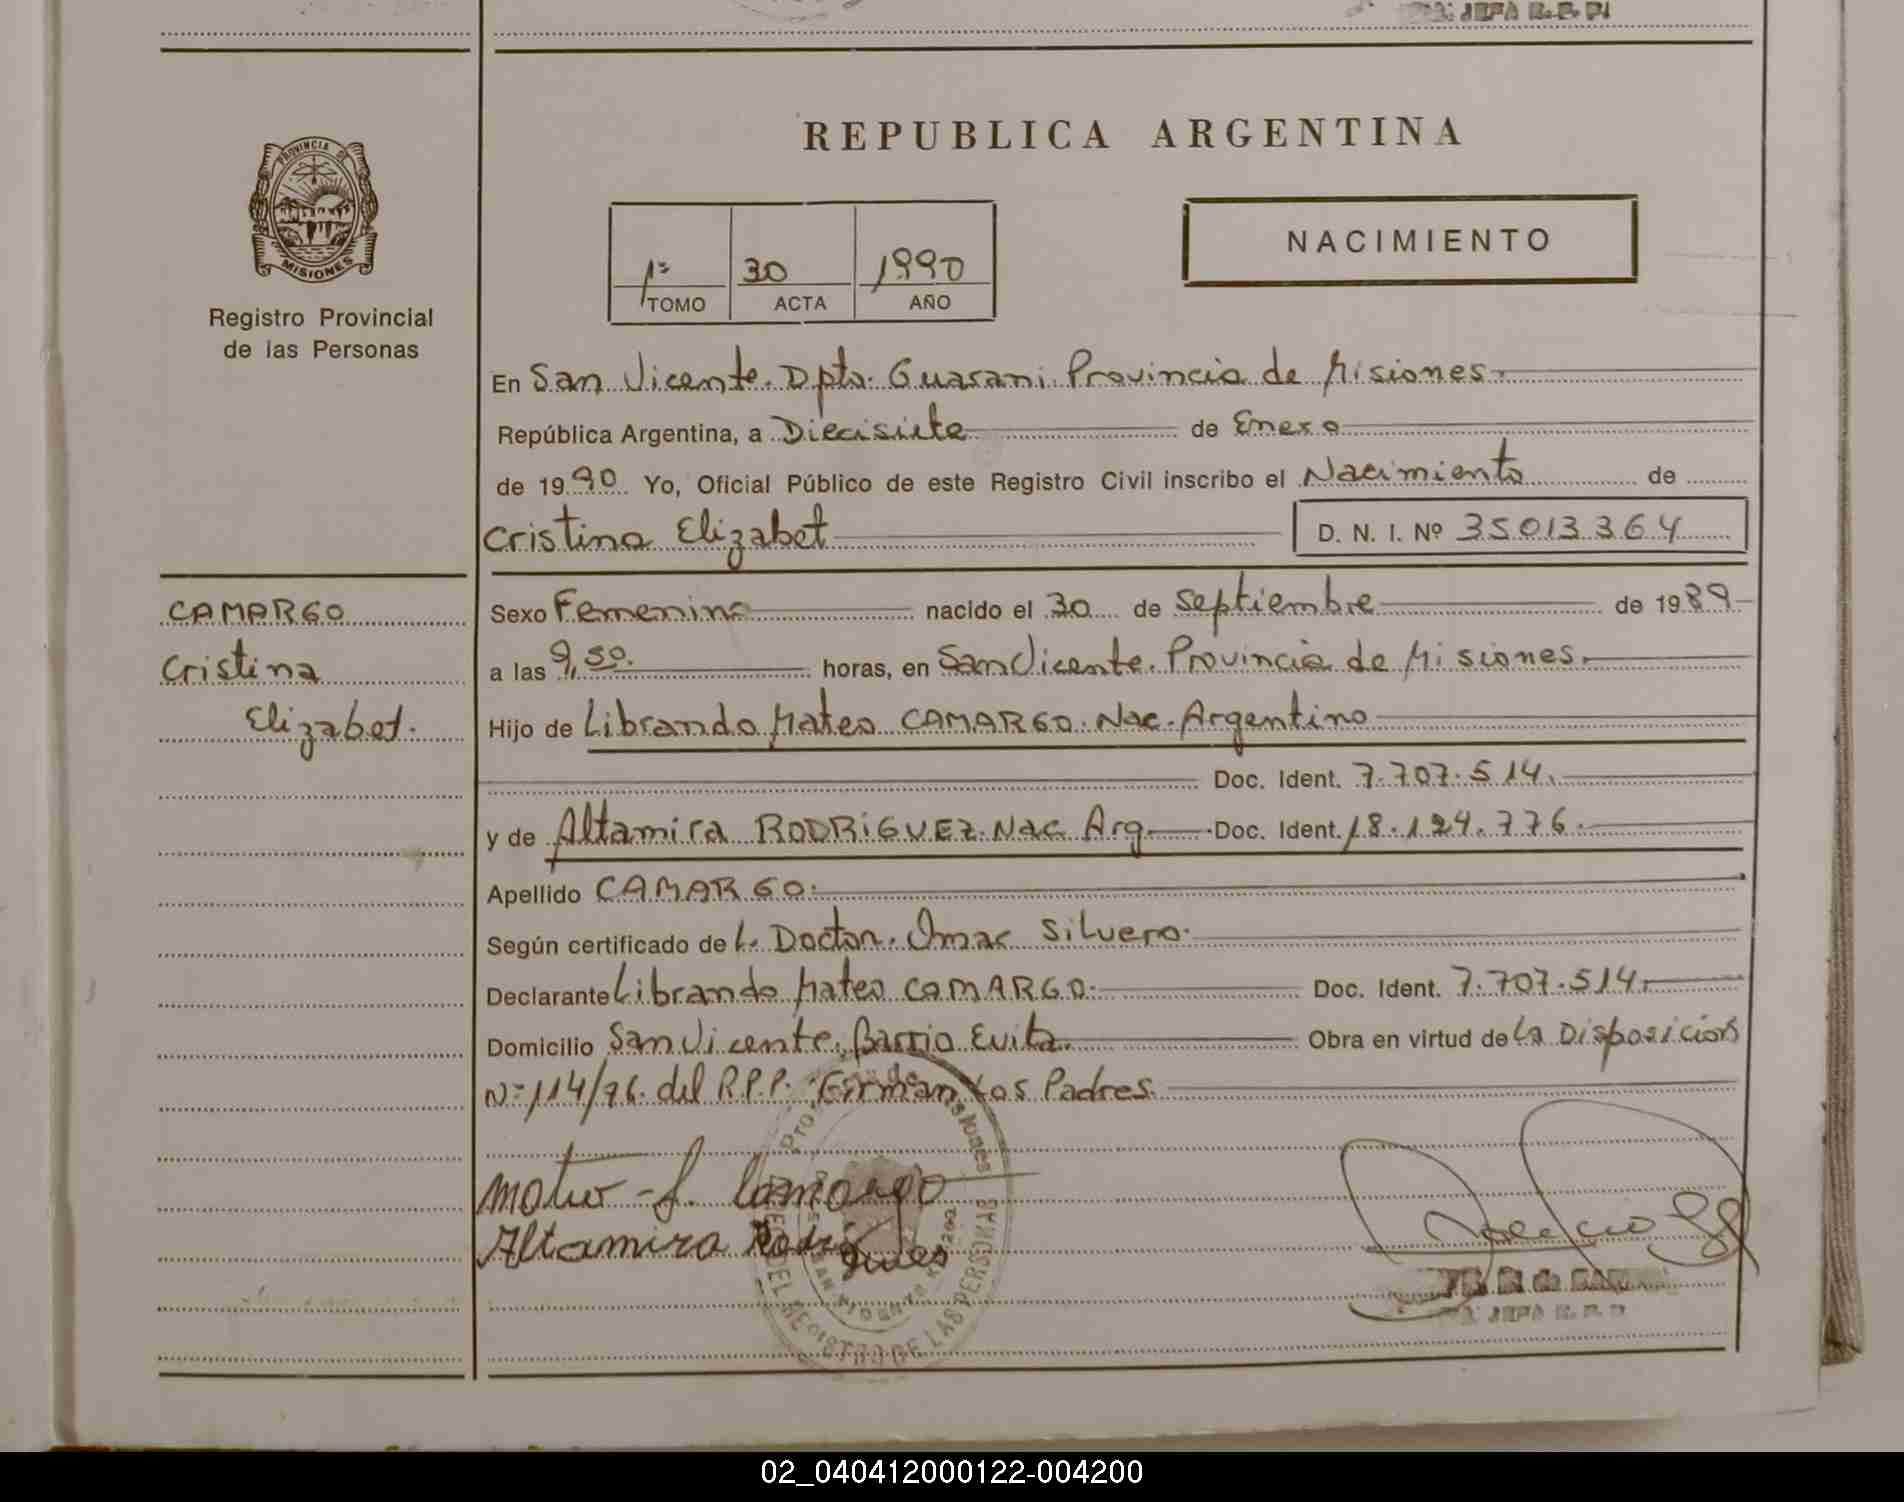 JEFA R. P. P.
REPUBLICA ARGENTINA
PROVINCIA DE
MISIONES
Registro Provincial
de las Personas
NACIMIENTO
1º 30 1990
TOMO ACTA AÑO
En San Vicente. Dpto. Guarani. Provincia de Misiones.
República Argentina, a Diecisiete de Enero
de 1990 Yo, Oficial Público de este Registro Civil inscribo el Nacimiento de
Cristina Elizabet D. N. I. Nº 35013364
CAMARGO
Cristina
Elizabet.
Sexo Femenino nacido el 30 de Septiembre de 1989
a las 9,50. horas, en San Vicente. Provincia de Misiones.
Hijo de Librando Mateo CAMARGO. Nac. Argentino
Doc. Ident. 7.707.514.
y de Altamira RODRIGUEZ. Nac. Arg. Doc. Ident. 18.124.776.
Apellido CAMARGO.
Según certificado del. Doctor. Omar Silvero.
Declarante Librando Mateo CAMARGO. Doc. Ident. 7.707.514.
Domicilio San Vicente. Barrio Evita. Obra en virtud de la Disposición
Nº 114/76. del R.P.P. Firman Los Padres.
L. Camargo
Altamira Rodrigues
DEL REGISTRO DE LAS PERSONAS
Misiones
SAN VICENTE
JEFA R. P. P.
02_040412000122-004200